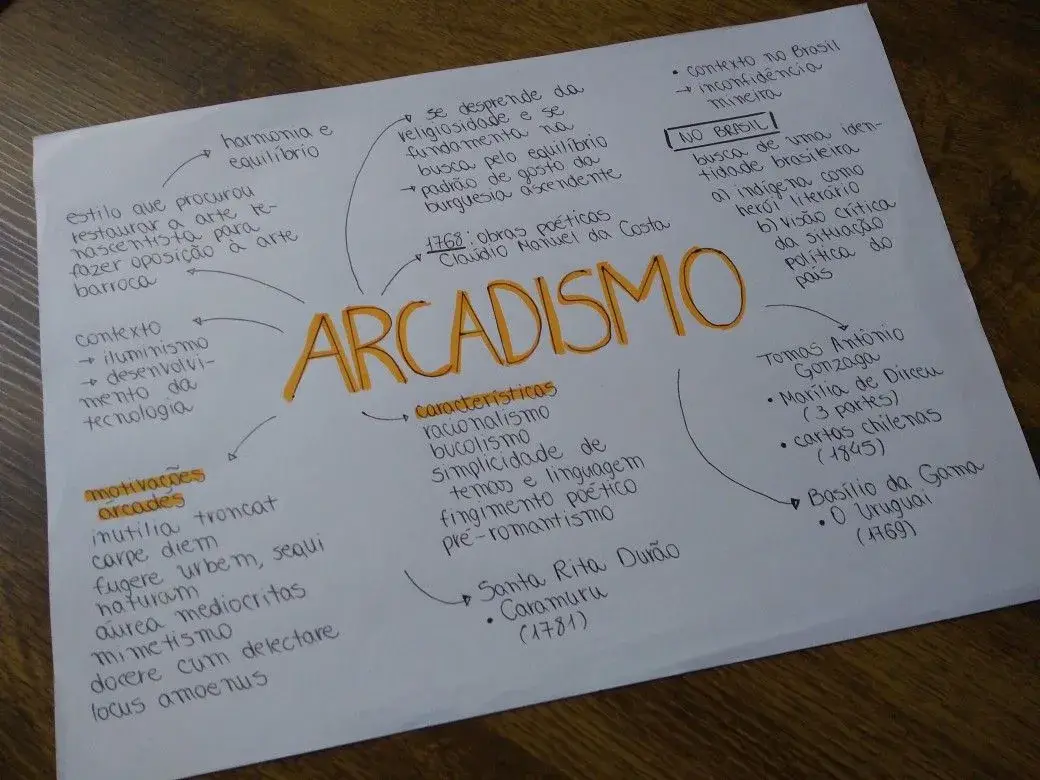 ARCADISMO
harmonia e
equilíbrio
estilo que procurou
restaurar a arte re-
nascentista para
fazer oposição à arte
barroca
contexto
→ iluminismo
→ desenvolvi-
mento da
tecnologia
motivações
árcades
inutilia troncat
carpe diem
fugere urbem, sequi
naturam
aúrea mediocritas
mimetismo
docere cum delectare
locus amoenus
se desprende da
religiosidade e se
fundamenta na
busca pelo equilíbrio
→ padrão de gosto da
burguesia ascendente
1768: obras poéticas
Claúdio Manuel da Costa
características
racionalismo
bucolismo
simplicidade de
temas e linguagem
fingimento poético
pré-romantismo
Santa Rita Durão
• Caramuru
(1781)
• contexto no Brasil
→ inconfidência
mineira
NO BRASIL
busca de uma iden-
tidade brasileira
a) indígena como
herói literário
b) visão crítica
da situação
política do
país
Tomas Antônio
Gonzaga
• Marília de Dirceu
(3 partes)
• cartas chilenas
(1845)
Basílio da Gama
• O Uruguai
(1769)